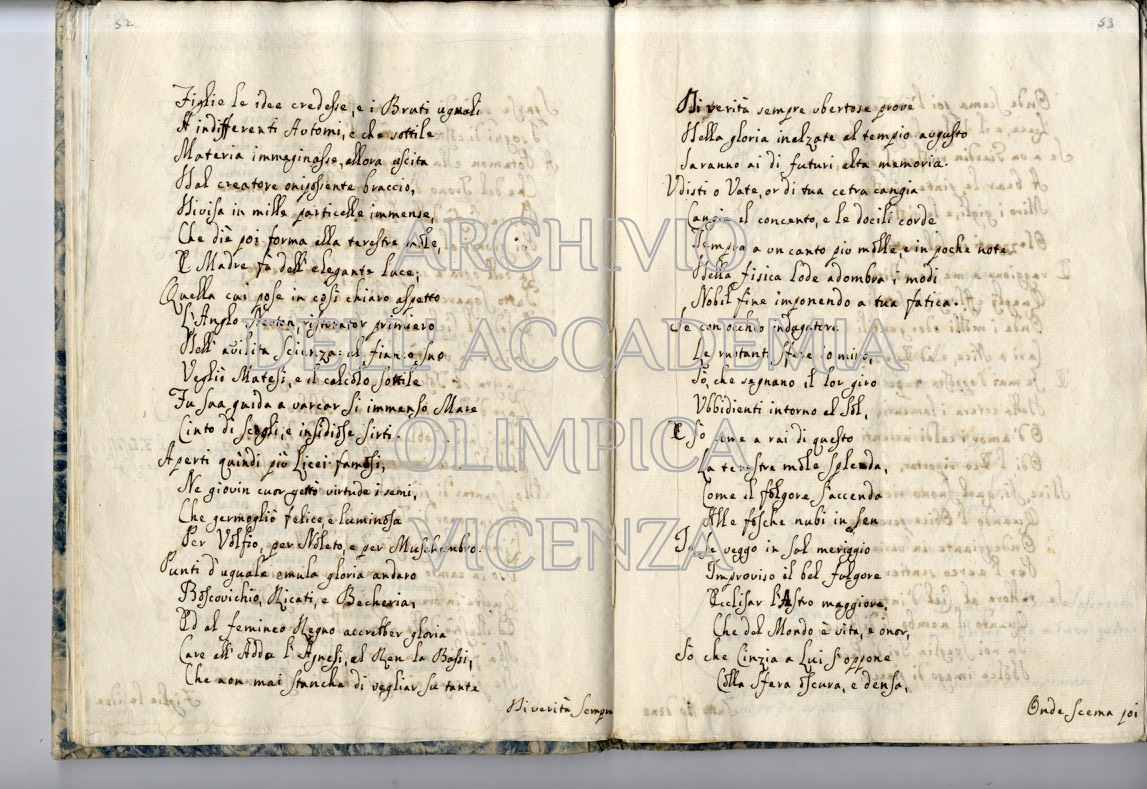 52
Figlie le idee credesse, e i Bruti uguali
A indifferenti Automi, e che sottile
Materia immaginasse, allora uscita
Dal creatore onipossente braccio,
Divisa in mille particelle immense,
Che diè poi forma alla terestre mole,
E Madre fù dell' elegante luce;
Quella cui pose in così chiaro aspetto
L'Anglo Neuton, ristorator primiero
Dell' avilita Scienza: al fianco suo
Vegliò Matesi, e il calcolo sottile
Fu sua guida a varcar sì immenso Mare
Cinto di scogli, e insidiose sirti.
Aperti quindi più Licei famosi,
Ne giovin cuor gettò virtude i semi,
Che germogliò felice, e luminosa
Per Volfio, per Noleto, e per Muschembro.
Punti d'uguale emula gloria andaro
Boscovichio, Ricati, e Becheria,
Ed al femineo Regno accrebber gloria
Care all' Adda l'Agnesi, al Ren la Bassi,
Che non mai stanche di vegliar su tante
Di verità sempre
53
Di verità sempre ubertose prove
Della gloria inalzate al tempio augusto
Saranno ai dì futuri alta memoria.
Udisti o Vate, or di tua cetra cangia
Cangia il concento, e le docili corde
Tempra a un canto più molle, e in poche note
Della fisica Lode adombra i modi
Nobil fine imponendo a tua fatica.
Se con occhio indagatore
Le rotanti sfere io miro,
Sò, che segnano il lor giro
Ubbidienti intorno al Sol,
E sò come a rai di questo
La terestre mole splenda,
Come il folgore s'accenda
Alle fosche nubi in sen
Se veggo in sul meriggio
Improviso il bel fulgore
Ecclisar l'Astro maggiore,
Che del Mondo è vita, e onor,
Sò che Cinzia a Lui s'oppone
Colla sfera oscura, e densa,
Onde scema poi
ARCHIVIO
DELL'ACCADEMIA
OLIMPICA
VICENZA